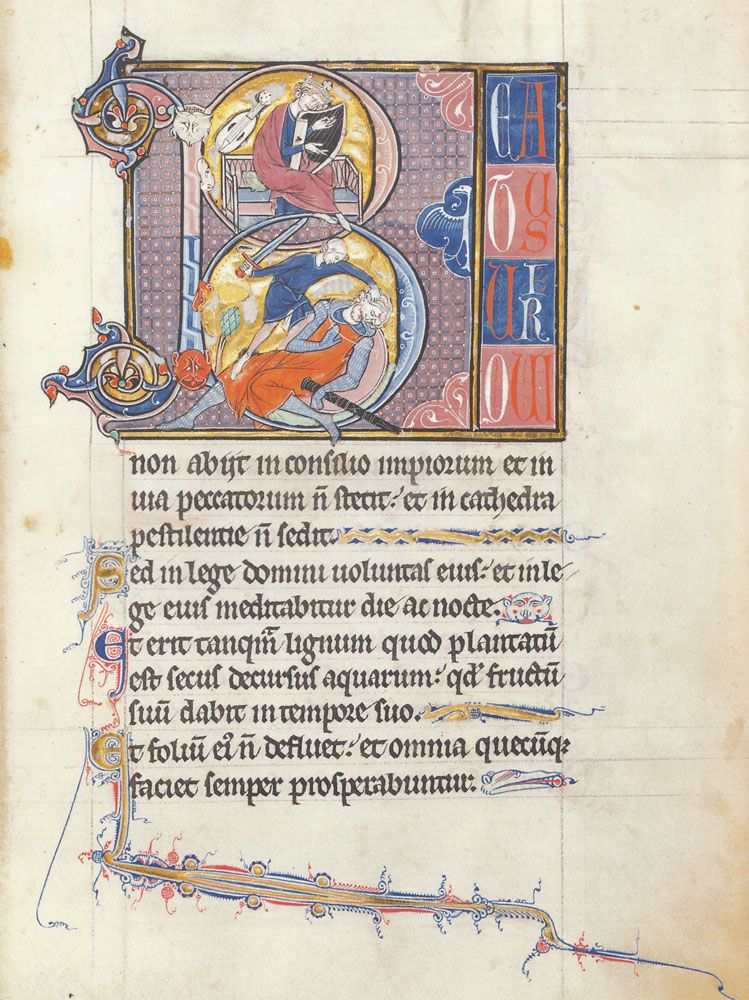 23
B
EA
TUS
UIR
QUI
non abijt in consilio impiorum et in
uia peccatorum n̄ stetit: et in cathedra
pestilentie n̄ sedit.
Sed in lege domini uoluntas eius: et in le-
ge eius meditabitur die ac nocte.
Et erit tanqm̄ lignum quod plantatū
est secus decursus aquarum: qd̄ fructū
suū dabit in tempore suo.
Et foliū eiꝰ n̄ defluet: et omnia quecūqꝫ
faciet semper prosperabuntur: